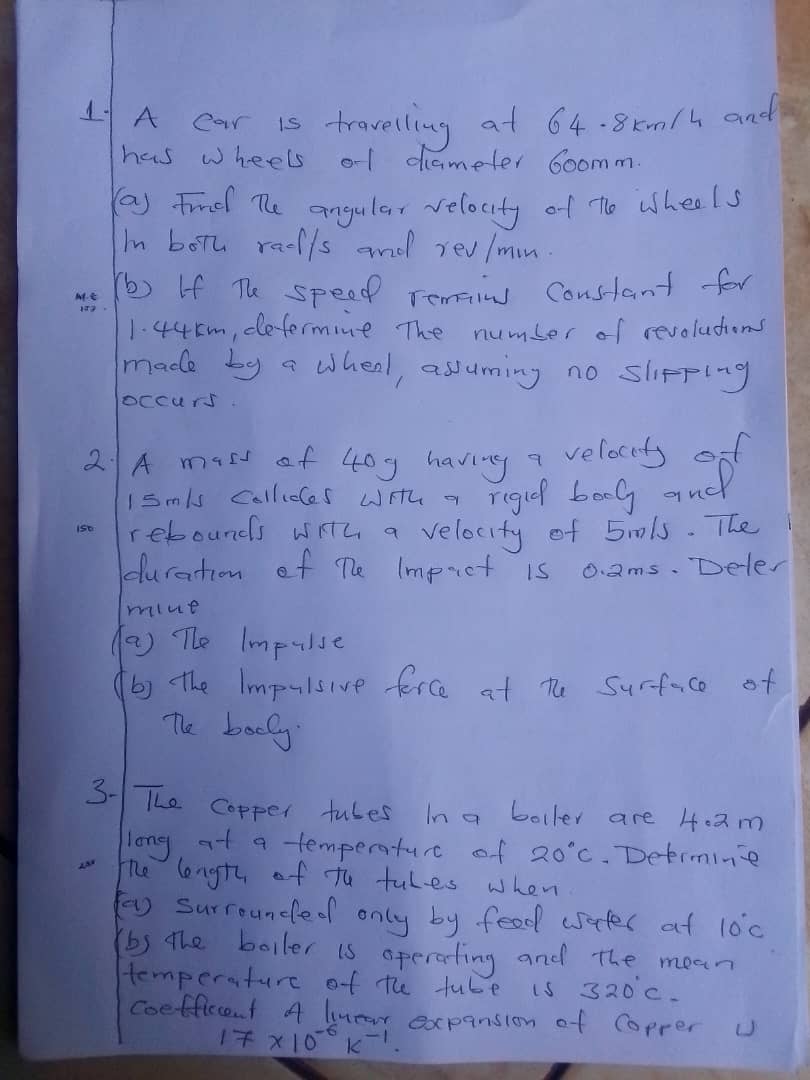 1. A car is travelling at 64.8km/h and
has wheels of diameter 600mm.
(a) Find the angular velocity of the wheels
in both rad/s and rev/min.
(b) If the speed remains constant for
M.E
157
1.44km, determine the number of revolutions
made by a wheel, assuming no slipping
occurs.
2. A mass of 40g having a velocity of
15m/s collides with a rigid body and
150
rebounds with a velocity of 5m/s. The
duration of the impact is 0.2ms. Deter
mine
(a) The Impulse
(b) the Impulsive force at the surface of
the body.
3. The Copper tubes in a boiler are 4.2m
long at a temperature of 20°C. Determine
the length of the tubes when
(a) Surrounded only by feed water at 10°C
(b) the boiler is operating and the mean
temperature of the tube is 320°C.
Coefficient of linear expansion of Copper is
17 x 10⁻⁶ K⁻¹.